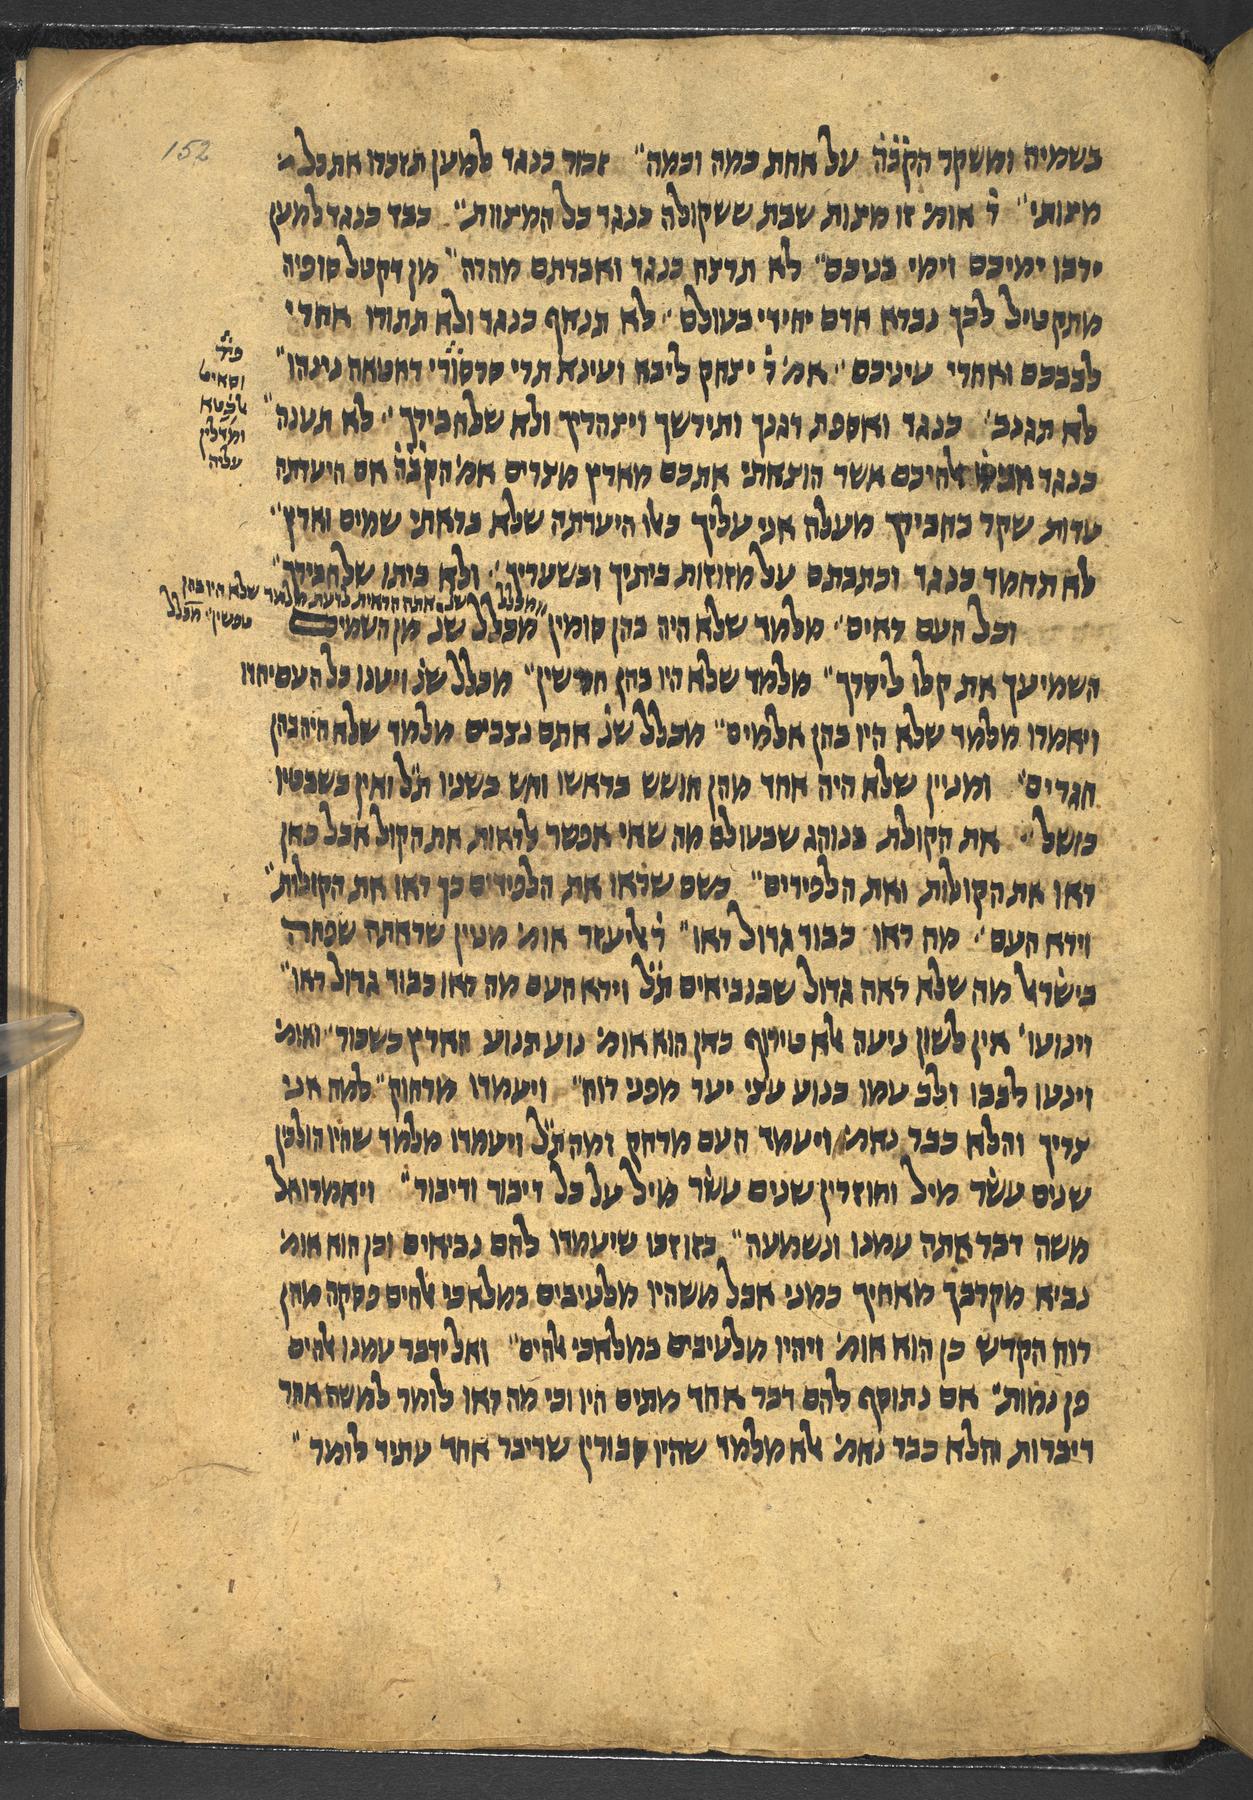 152
בשמיה ומשקר הק'ב'ה' על אחת כמה וכמה" זכור כנגד למען תזכרו את כל
מצותי" ר' אומ' זו מצות שבת ששקולה כנגד כל המצוות" כבד כנגד למען
ירבו ימיכם וימי בניכם" לא תרצח כנגד ואבדתם מהרה" מן דקטל סופיה
מתקטיל לכך נברא אדם יחידי בעולם" לא תנאף כנגד ולא תתורו אחרי
לבבכם ואחרי עיניכם" אמ' ר' יצחק ליבא ועינא תרי סרסורי דחטאה נינהו"
לא תגנב' כנגד ואספת דגנך ותירשך ויצהריך ולא שלחבירך" לא תענה"
כנגד אלהיכם אשר הוצאתי אתכם מארץ מצרים אמ' הק'ב'ה' אם העדתה
עדות שקר בחביקך מעלה אני עליך כאו היעדתה שלא בראתי שמים וארץ"
לא תחמד כנגד וכתבתם על מזוזות ביתיך ובשעריך" ולא ביתו שלחבירך"
מכלל שנ' אתה הראית לדעת מלמד שלא היו בהן
טפשין" מכלל
וכל העם ראים" מלמד שלא היה בהן סומין" מכלל שנ' מן השמים
השמיעך את קלו ליסרך" מלמד שלא היו בהן חרשין" מכלל שנ' ויענו כל העם יחדו
ויאמרו מלמד שלא היו בהן אלמים" מכלל שנ' אתם נצבים מלמד שלא היה בהן
חגרים" ומניין שלא היה אחד מהן חושש בראשו וחש בשניו ת'ל' ואין בשבטיו
כושל" את הקולת בנוהג שבעולם מה שאי אפשר לראות את הקול אבל כאן
ראו את הקולות ואת הלפידים" כשם שראו את הלפידים כך ראו את הקולות"
וירא העם" מה ראו כבוד גדול ראו" ר' אליעזר אומ' מניין שראתה שפחה
בישר' אל מה שלא ראה גדול שבנביאים ת'ל' וירא העם מה ראו כבוד גדול ראו"
וינועו' אין לשון ניעה אלא טירוף כאן הוא אומ' נוע תנוע הארץ כשכור" ואומ'
וינע לבבו ולב עמו כנוע עצי יער מפני רוח" ויעמדו מרחוק" למה אני
צריך והלא כבר נאמ' ויעמד העם מרחק ומה ת'ל' ויעמדו מלמד שהיו הולכין
שנים עשר מיל וחוזרין שנים עשר מיל על כל דיבור ודיבור" ויאמרו אל
משה דבר אתה עמנו ונשמעה" בזו זכו שיעמדו להם נביאים וכן הוא אומ'
נביא מקרבך מאחיך כמני אבל משהיו מלעיבים במלאכי אלהים פסקה מהן
רוח הקדש כן הוא אומ' ויהיו מלעיבים במלאכי אלהים" ואל ידבר עמנו אלהים
פן נמות" אם נתוסף להם דבר אחד מתים היו וכי מה ראו לומר למשה אחר
דיברות והלא כבר נאמ' אלא מלמד שהיו סבורין שדיבר אחד עתיד לומר"
ומדלין
עליה